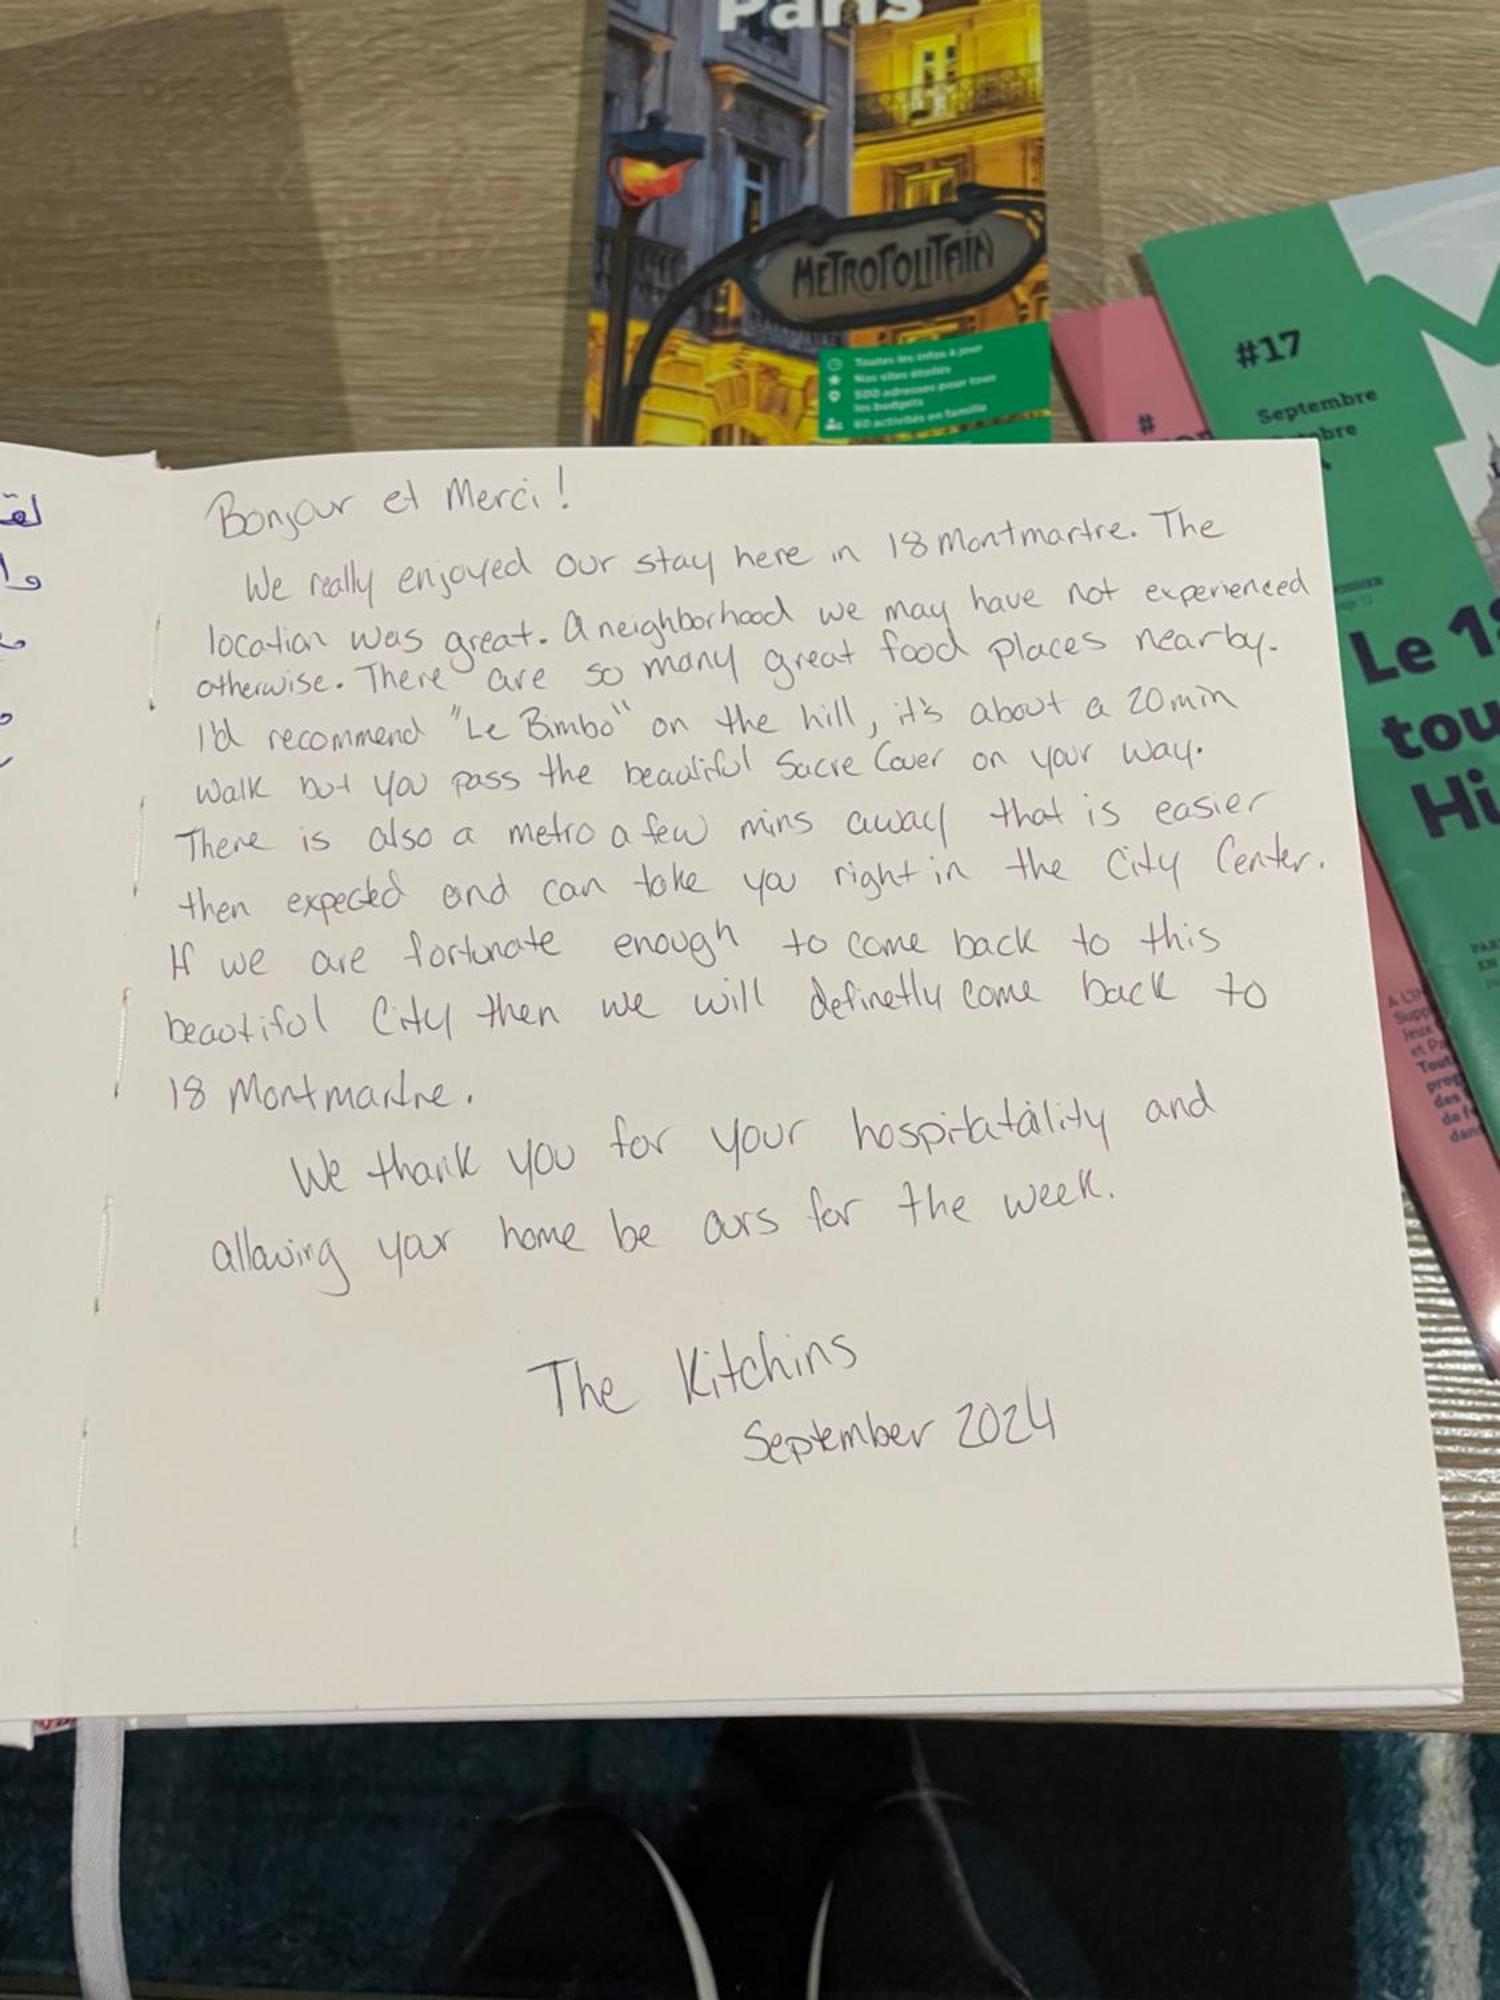 Paris
METROPOLITAIN
Toutes les infos à jour
Nos sites étoilés
500 adresses pour tous
les budgets
60 activités en famille
#17
Septembre
#
Le 18
tou
Hi
Bonjour et Merci!
We really enjoyed our stay here in 18 Montmartre. The
location was great. A neighborhood we may have not experienced
otherwise. There are so many great food places nearby.
I'd recommend "Le Bimbo" on the hill, it's about a 20 min
walk but you pass the beautiful Sacre Couer on your way.
There is also a metro a few mins away that is easier
then expected and can take you right in the City Center.
If we are fortunate enough to come back to this
beautiful City then we will definetly come back to
18 Montmartre.
We thank you for your hospitatality and
allowing your home be ours for the week.
The Kitchins
September 2024
A L'IN
Supp
Jeux
et Pa
Tout
prog
des
de l'
dan